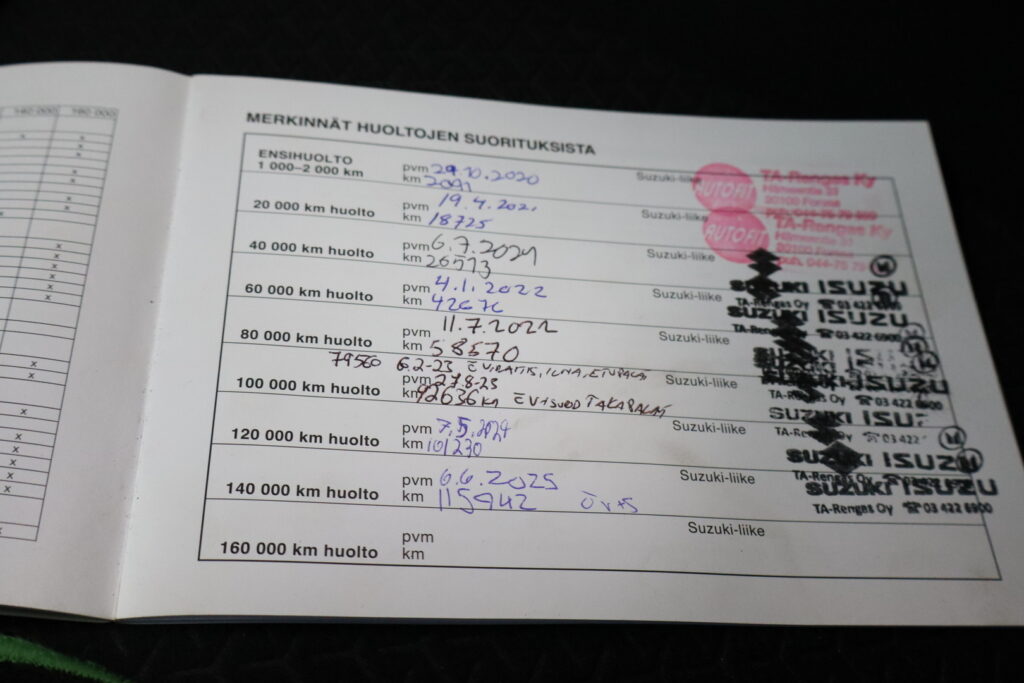 160 000 180 000
MERKINNÄT HUOLTOJEN SUORITUKSISTA
ENSIHUOLTO
1 000–2 000 km
pvm 29.10.2020
km 2091
Suzuki-liike
AUTOFIT
TA-Rengas Ky
Hämeentie 31
30100 Forssa
20 000 km huolto
pvm 19.4.2021
km 18725
Suzuki-liike
AUTOFIT
TA-Rengas Ky
Hämeentie 31
30100 Forssa
puh. 044-75 79
40 000 km huolto
pvm 6.7.2021
km 26573
Suzuki-liike
SUZUKI ISUZU
TA-Rengas Oy ☎ 03 422 6900
60 000 km huolto
pvm 4.1.2022
km 42676
Suzuki-liike
SUZUKI ISUZU
TA-Rengas Oy ☎ 03 422 6900
80 000 km huolto
pvm 11.7.2022
km 58570
Suzuki-liike
SUZUKI ISUZU
79560 6.2-23
100 000 km huolto
pvm 27.8-23
km 92636 KM TAKAPALAT
Suzuki-liike
SUZUKI ISUZU
☎ 03 422 6900
120 000 km huolto
pvm 7.5.2024
km 101230
Suzuki-liike
SUZUKI ISUZU
☎ 03 422
140 000 km huolto
pvm 6.6.2025
km 115942
Suzuki-liike
SUZUKI ISUZU
SUZUKI ISUZU
TA-Rengas Oy ☎ 03 422 6900
160 000 km huolto
pvm
km
Suzuki-liike